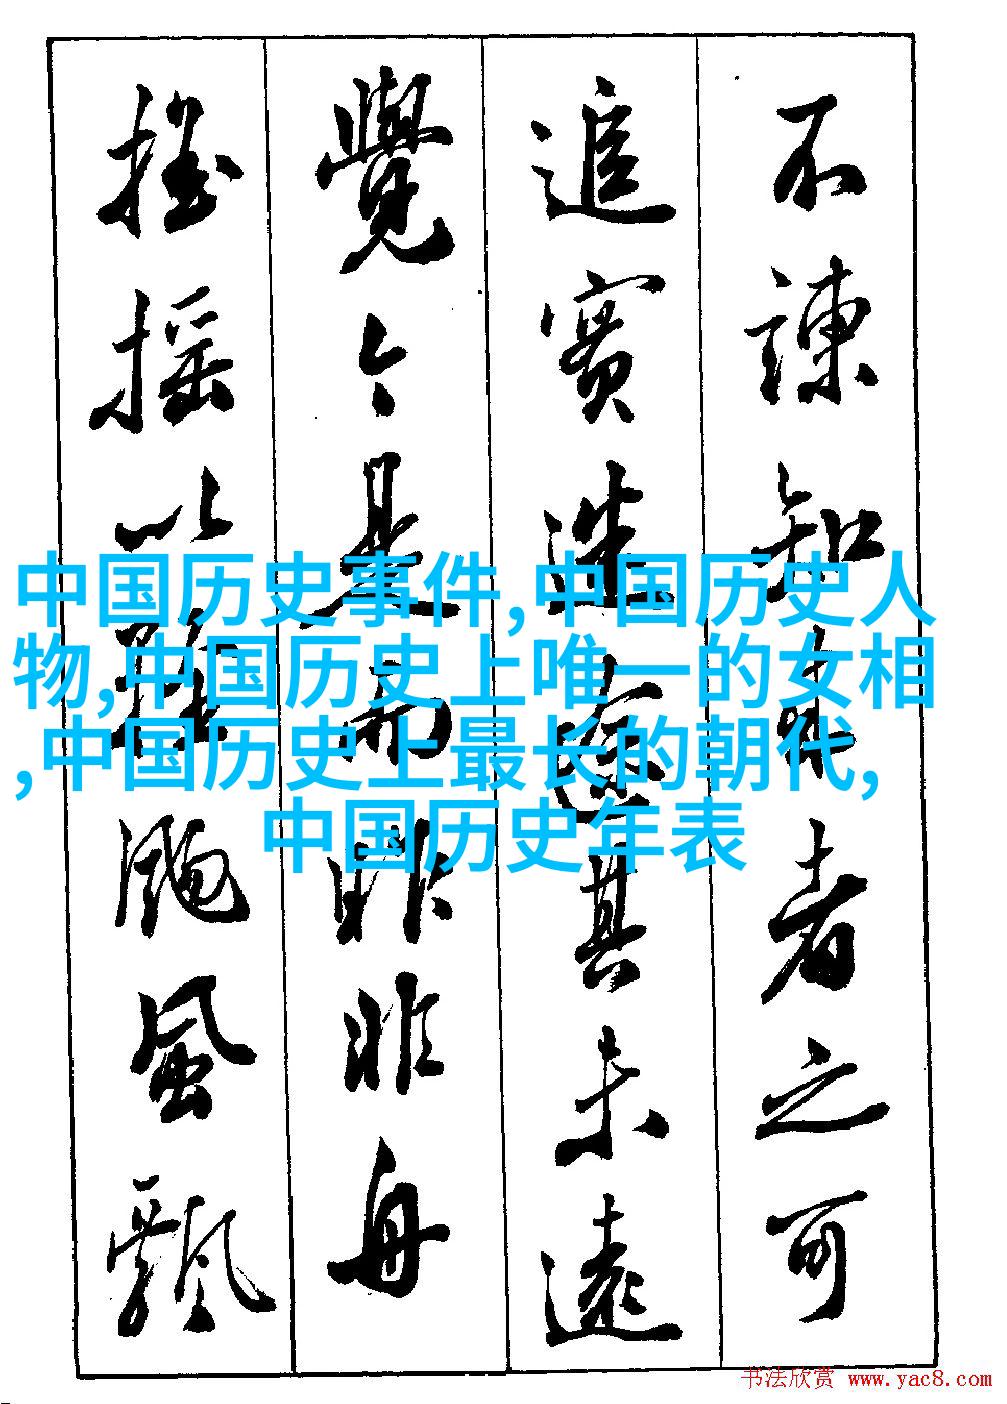 不諫知来者之可
追實迷途其未遠
覺今是而昨非舟
摇摇以輕颺風飄
中国历史事件,中国历史人
物,中国历史上唯一的女相
,中国历史上最长的朝代,
中国历史年表
书法欣赏 www.yac8.com